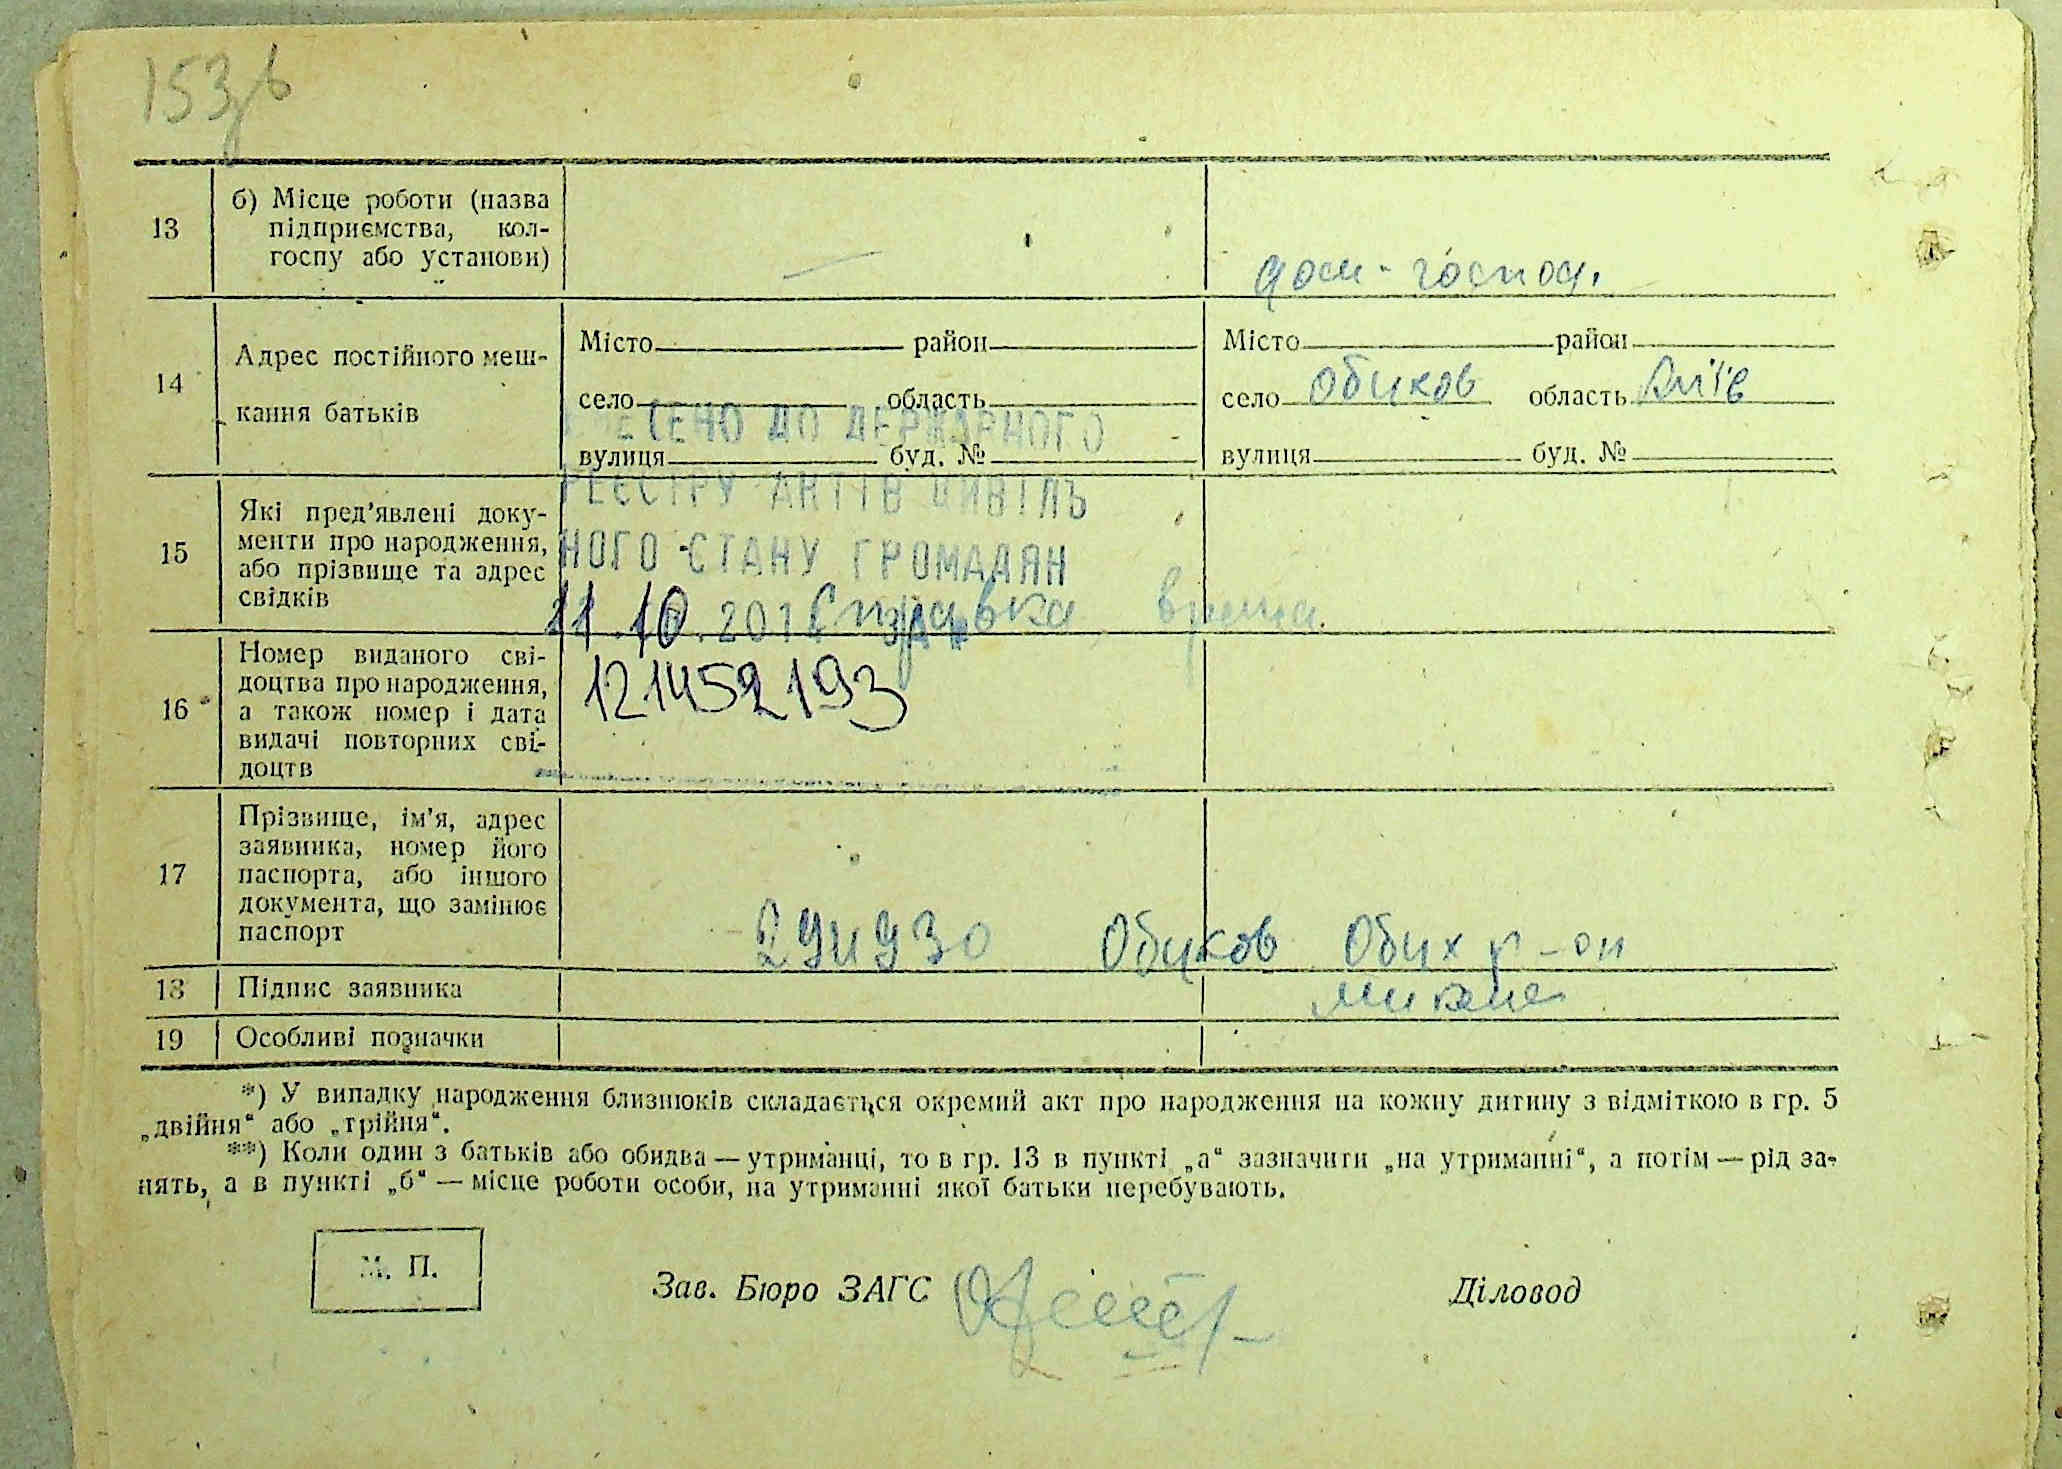 153зв
13
б) Місце роботи (назва
підприємства, кол-
госпу або установи)
—
дом-господ.
14
Адрес постійного меш-
кання батьків
Місто район
село область
вулиця буд. №
Місто район
село Обуков область Київ
вулиця буд. №
ВНЕСЕНО ДО ДЕРЖАВНОГО
РЕЄСТРУ АКТІВ ЦИВІЛЬ
НОГО СТАНУ ГРОМАДЯН
11.10.201 ЗА №
121452193
15
Які пред'явлені доку-
менти про народження,
або прізвище та адрес
свідків
Справка врача
16
Номер виданого сві-
доцтва про народження,
а також номер і дата
видачі повторних сві-
доцтв
17
Прізвище, ім'я, адрес
заявника, номер його
паспорта, або іншого
документа, що замінює
паспорт
Обуков Обух р-он
18
Підпис заявника
19
Особливі позначки
*) У випадку народження близнюків складається окремий акт про народження на кожну дитину з відміткою в гр. 5
„двійня“ або „трійня“.
**) Коли один з батьків або обидва — утриманці, то в гр. 13 в пункті „а“ зазначити „на утриманні“, а потім — рід за-
нять, а в пункті „б“ — місце роботи особи, на утриманні якої батьки перебувають.
М. П.
Зав. Бюро ЗАГС
Діловод